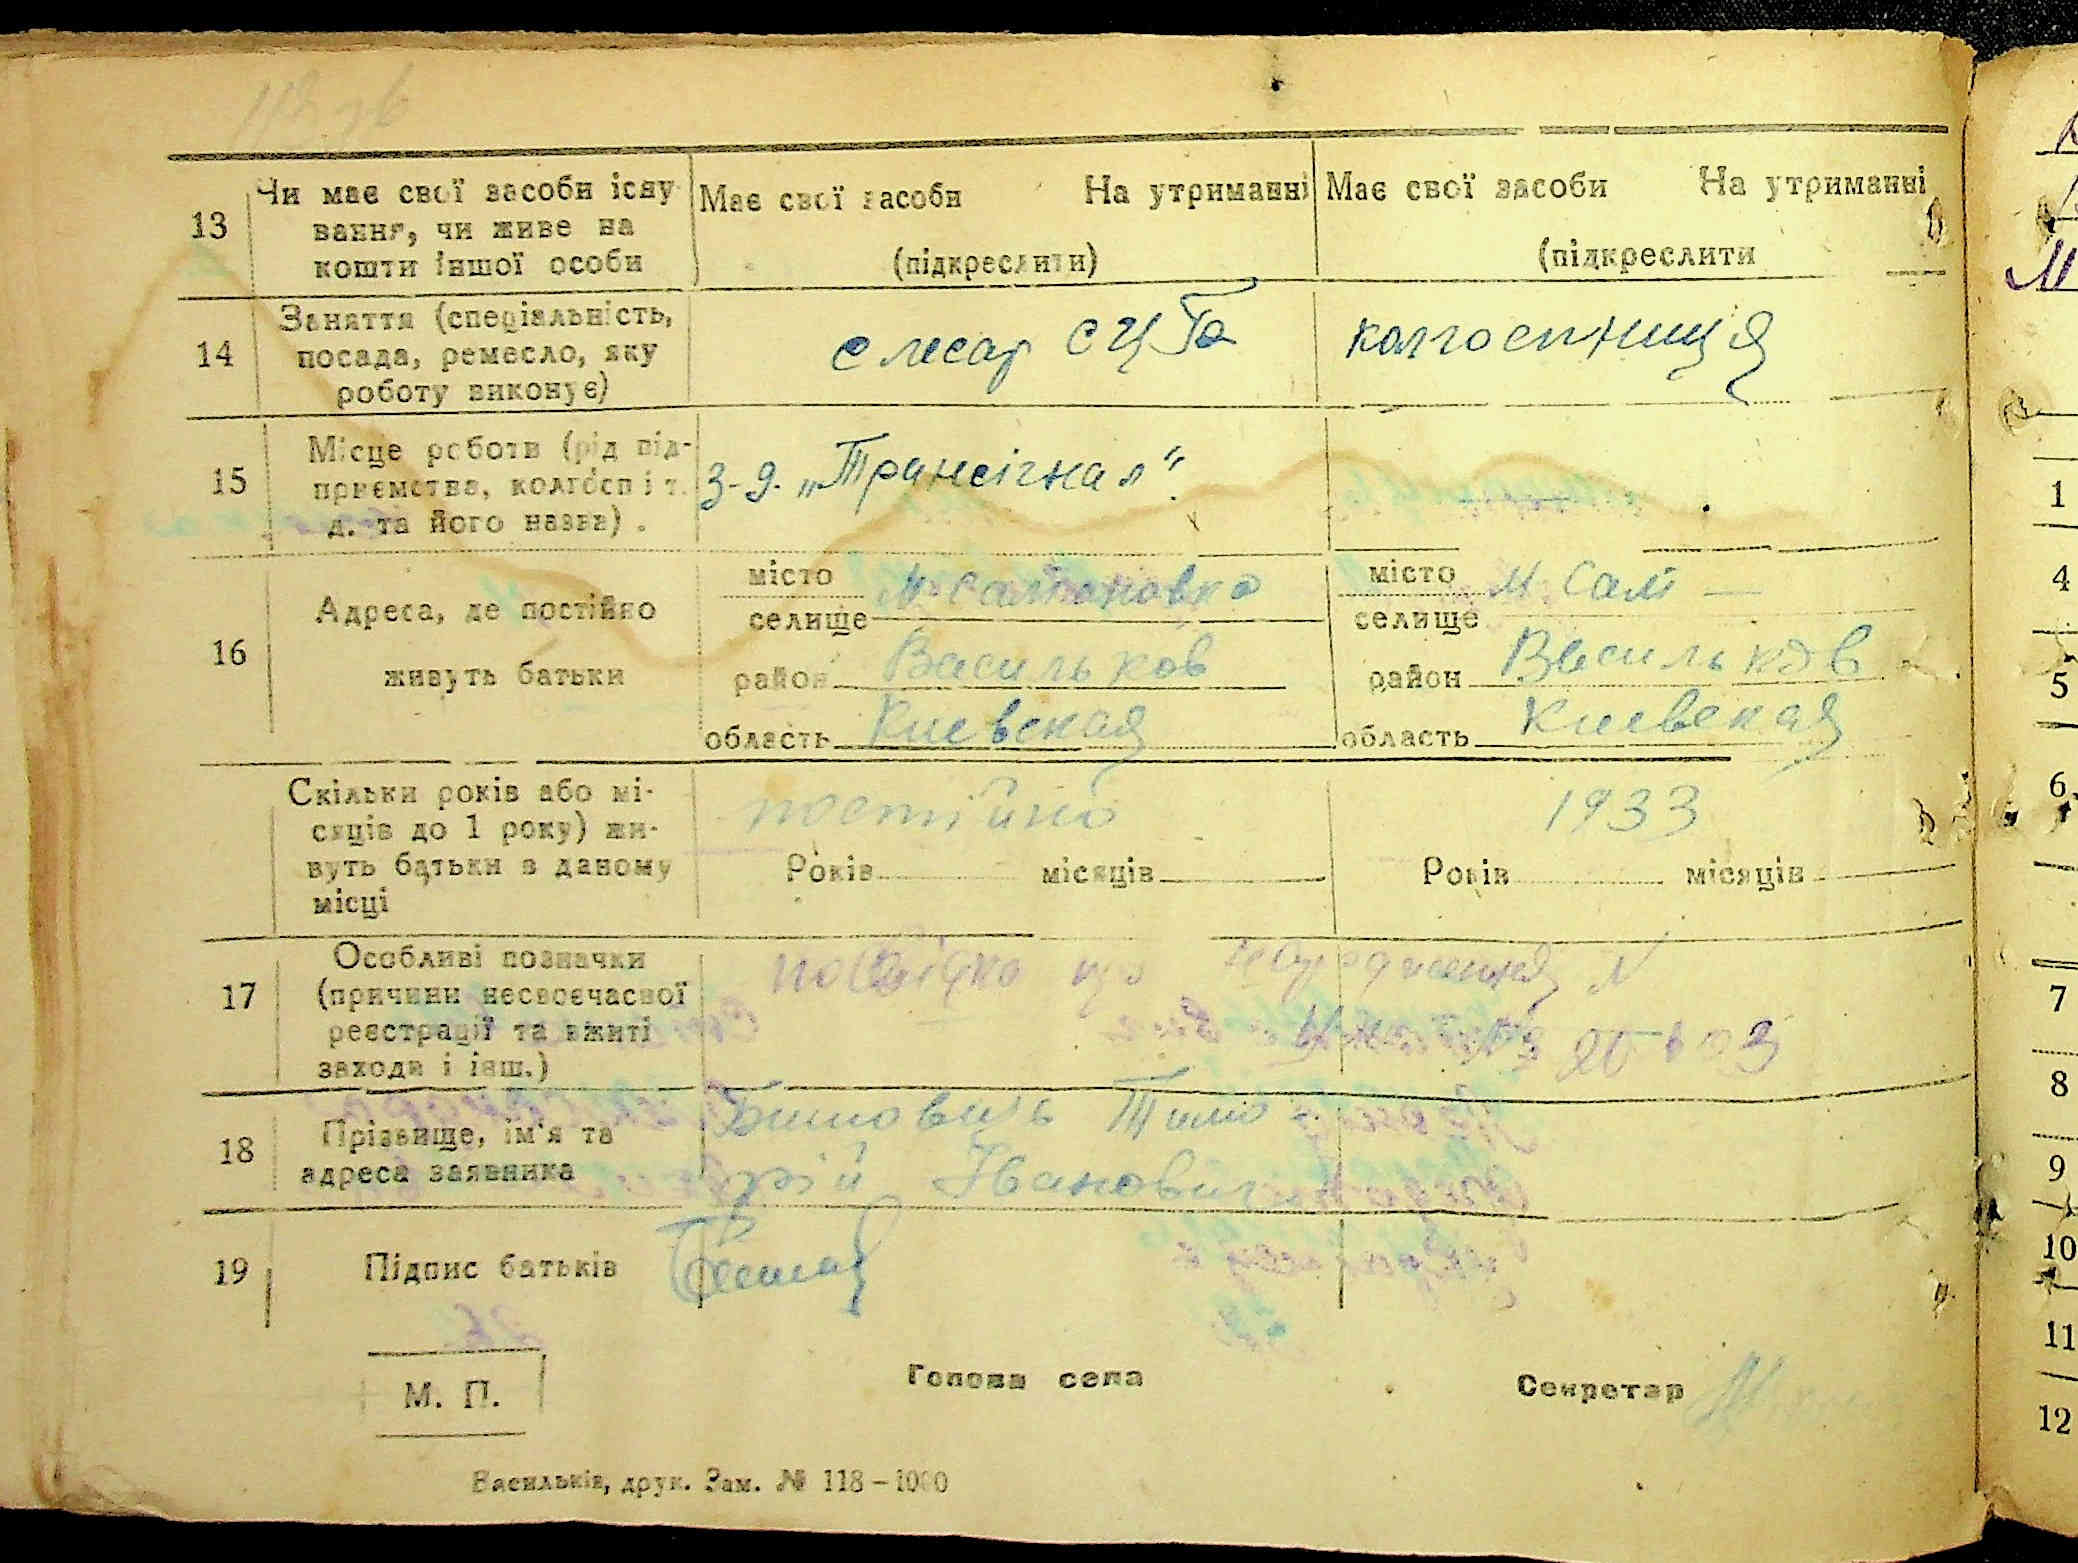 13 Чи має свої засоби існу
вання, чи живе на
кошти іншої особи
Має свої засоби На утриманні
(підкреслити)
Має свої засоби На утриманні
(підкреслити
14 Заняття (спеціальність,
посада, ремесло, яку
роботу виконує)
слесар
колгоспниця
15 Місце роботи (рід під-
приємства, колгосп і т.
д. та його назва).
з-д. „Трансігнал".
16 Адреса, де постійно
живуть батьки
місто
селище
м. Салтановка
район Васильков
область Киевская
місто
селище
м. Салт —
район Васильков
область Киевская
Скільки років або мі-
сяців до 1 року) жи-
вуть батьки в даному
місці
постійно
Років місяців
1933
Років місяців
17 Особливі позначки
(причини несвоєчасної
реєстрації та вжиті
заходи і інш.)
посвідка про народження №
18 Прізвище, ім'я та
адреса заявника
Тимо
фій Іванович
19 Підпис батьків
М. П.
Голова села
Секретар
Васильків, друк. Зам. № 118–1000
1
4
5
6.
7
8
9
10
11
12